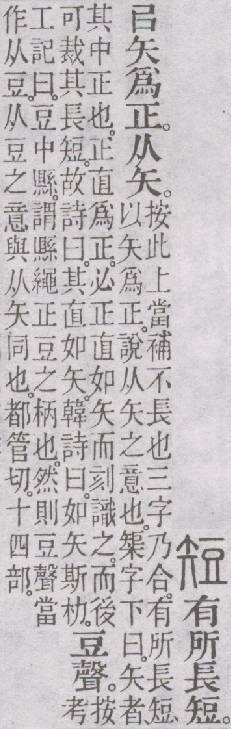 短有所長短。
㠯矢爲正。从矢。
按此上當補不長也三字乃合。有所長短
以矢爲正。說从矢之意也。榘字下曰。矢者、
其中正也。正直爲正。必正直如矢而刻識之。而後
可裁其長短。故詩曰。其直如矢。韓詩曰。如矢斯朸。
豆聲。
按
考
工記曰。豆中縣。謂縣繩正豆之柄也。然則豆聲當
作从豆。从豆之意與从矢同也。都管切。十四部。